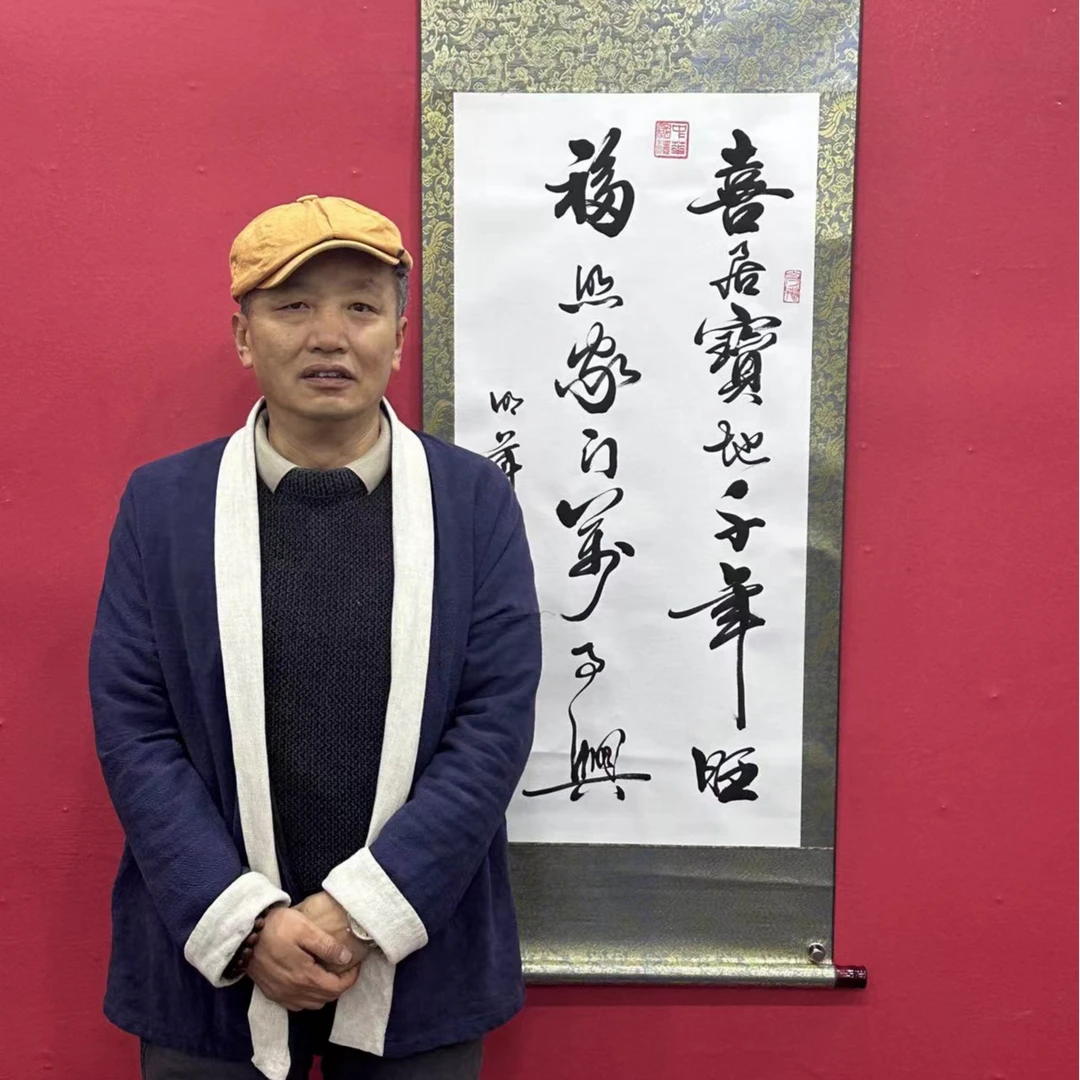 喜居寶地千年旺
福照家門萬事興
明華